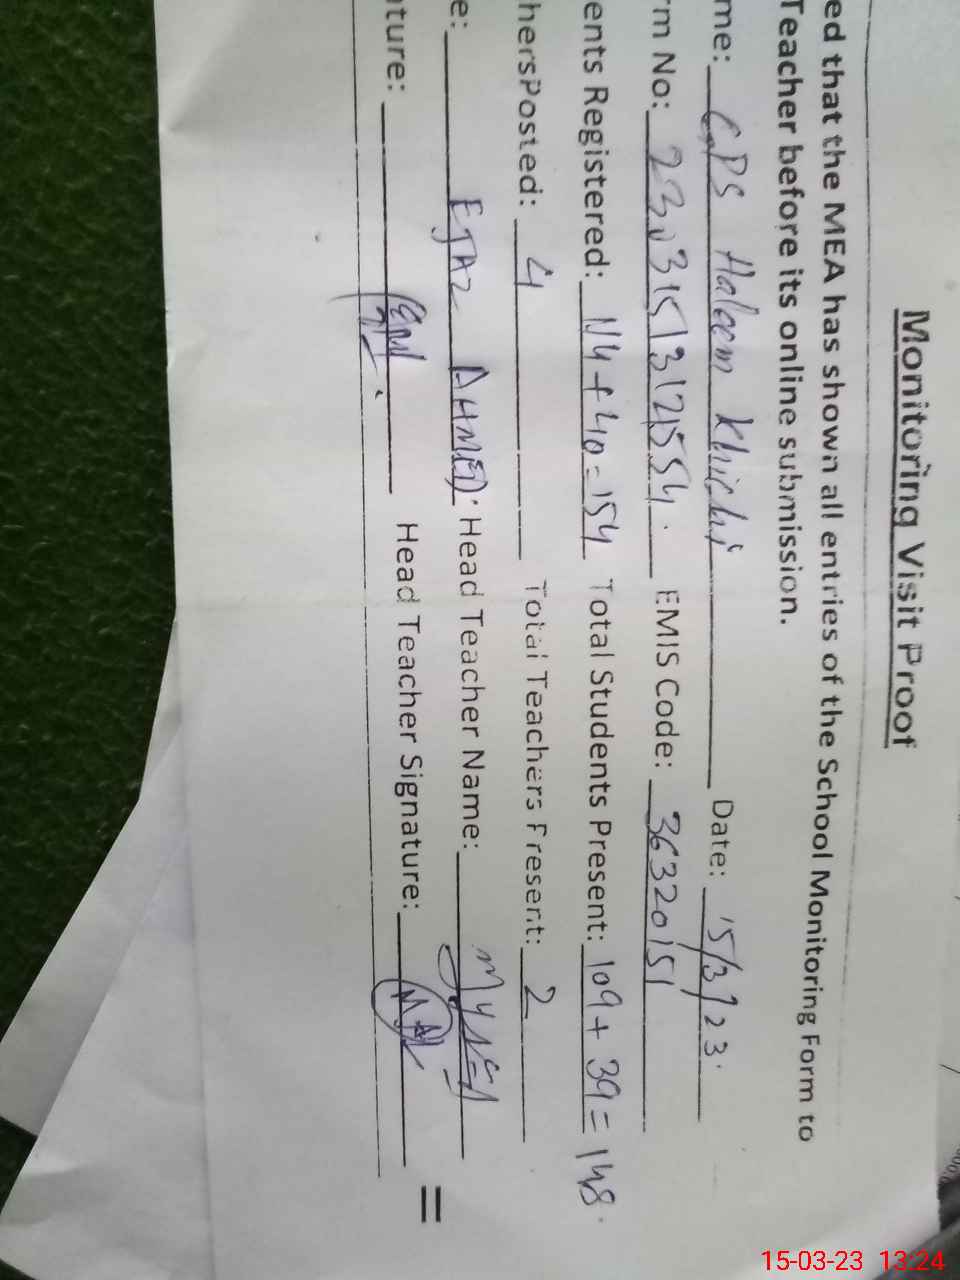 Monitoring Visit Proof
ed that the MEA has shown all entries of the School Monitoring Form to
Teacher before its online submission.
me: GPS Haleem Khichi Date: 15/3/23.
rm No: 2303151312554. EMIS Code: 36320151
ents Registered: 114+40=154 Total Students Present: 109+39=148.
hersPosted: 4 Total Teachers Present: 2
e: EJAZ AHMED. Head Teacher Name:
ature: Head Teacher Signature:
15-03-23 13:24